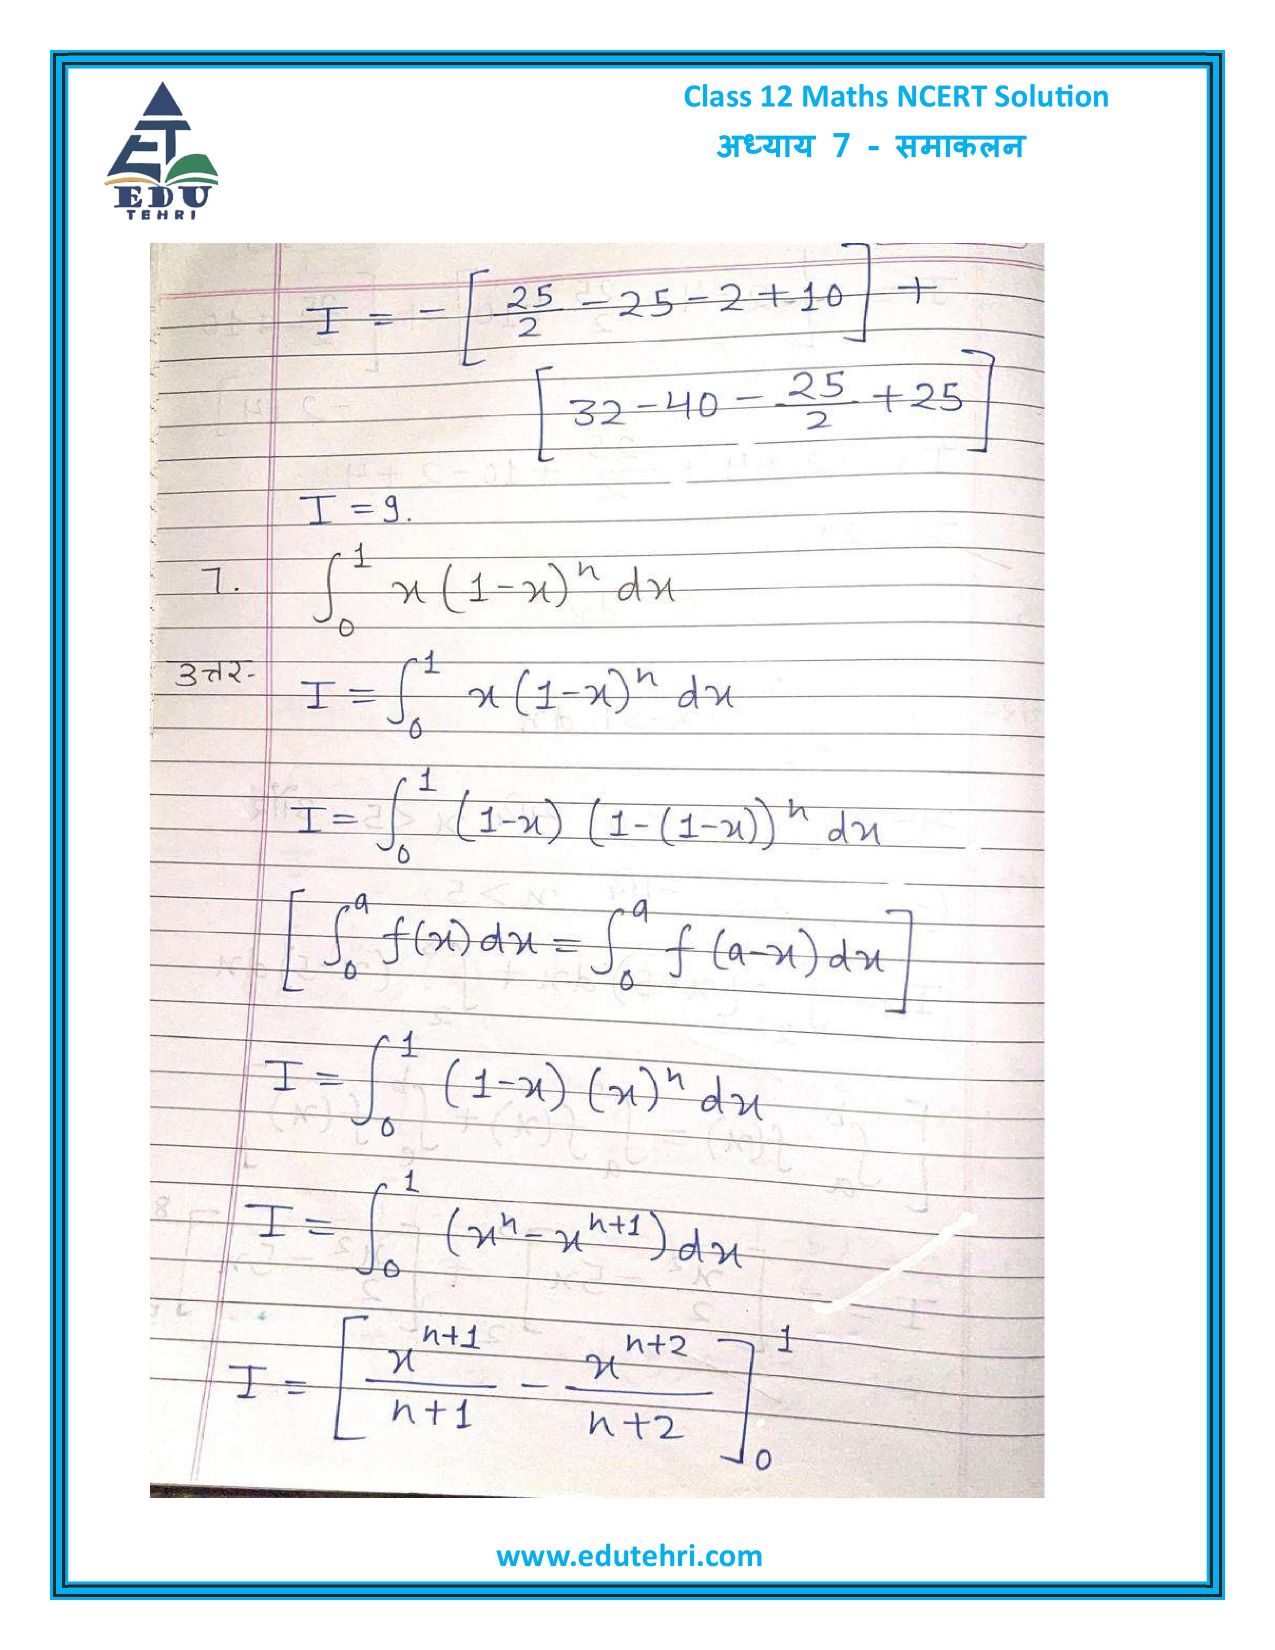 Class 12 Maths NCERT Solution
अध्याय 7 - समाकलन
EDU
TEHRI
I = - [ 25/2 - 25 - 2 + 10 ] +
[ 32 - 40 - 25/2 + 25 ]
I = 9.
7. ∫₀¹ x(1-x)ⁿ dx
उत्तर- I = ∫₀¹ x(1-x)ⁿ dx
I = ∫₀¹ (1-x) (1-(1-x))ⁿ dx
[ ∫₀ᵃ f(x)dx = ∫₀ᵃ f(a-x)dx ]
I = ∫₀¹ (1-x) (x)ⁿ dx
I = ∫₀¹ (xⁿ - xⁿ⁺¹) dx
I = [ xⁿ⁺¹/n+1 - xⁿ⁺²/n+2 ]₀¹
www.edutehri.com